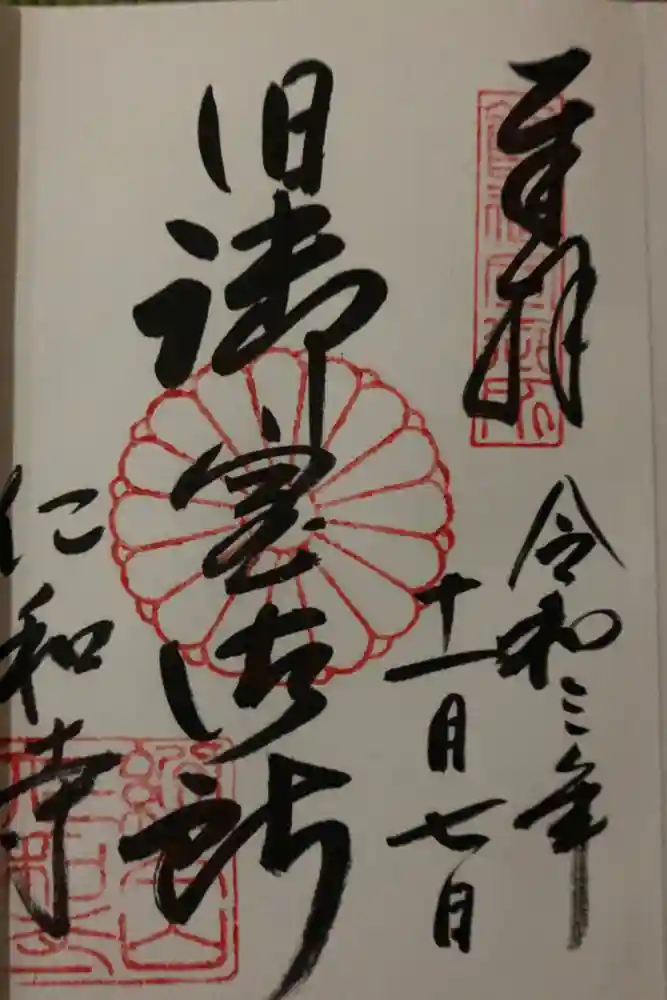 奉拝
令和三年
十一月七日
旧御室御所
仁和寺